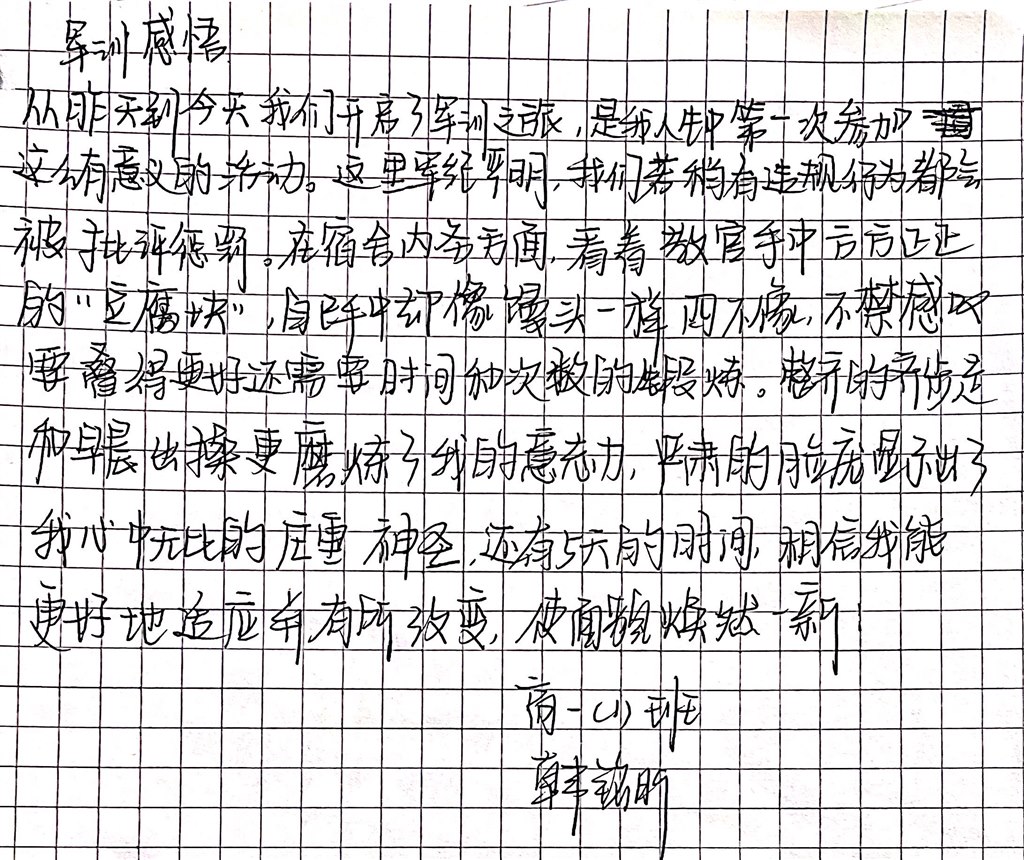 军训感悟
从昨天到今天我们开启了军训之旅,是我人生中第一次参加
这么有意义的活动。这里军纪严明,我们若稍有违规行为都会
被批评惩罚。在宿舍内务方面,看着教官手中方方正正
的“豆腐块”,自己手中却像馒头一样四不像,不禁感叹
要叠得更好还需要时间和次数的锻炼。整齐的齐步走
和早晨出操更磨炼了我的意志力,严肃的脸庞显示出了
我心中无比的庄重神圣,还有5天的时间,相信我能
更好地适应并有所改变,使面貌焕然一新!
高一(1)班
韩铭昕